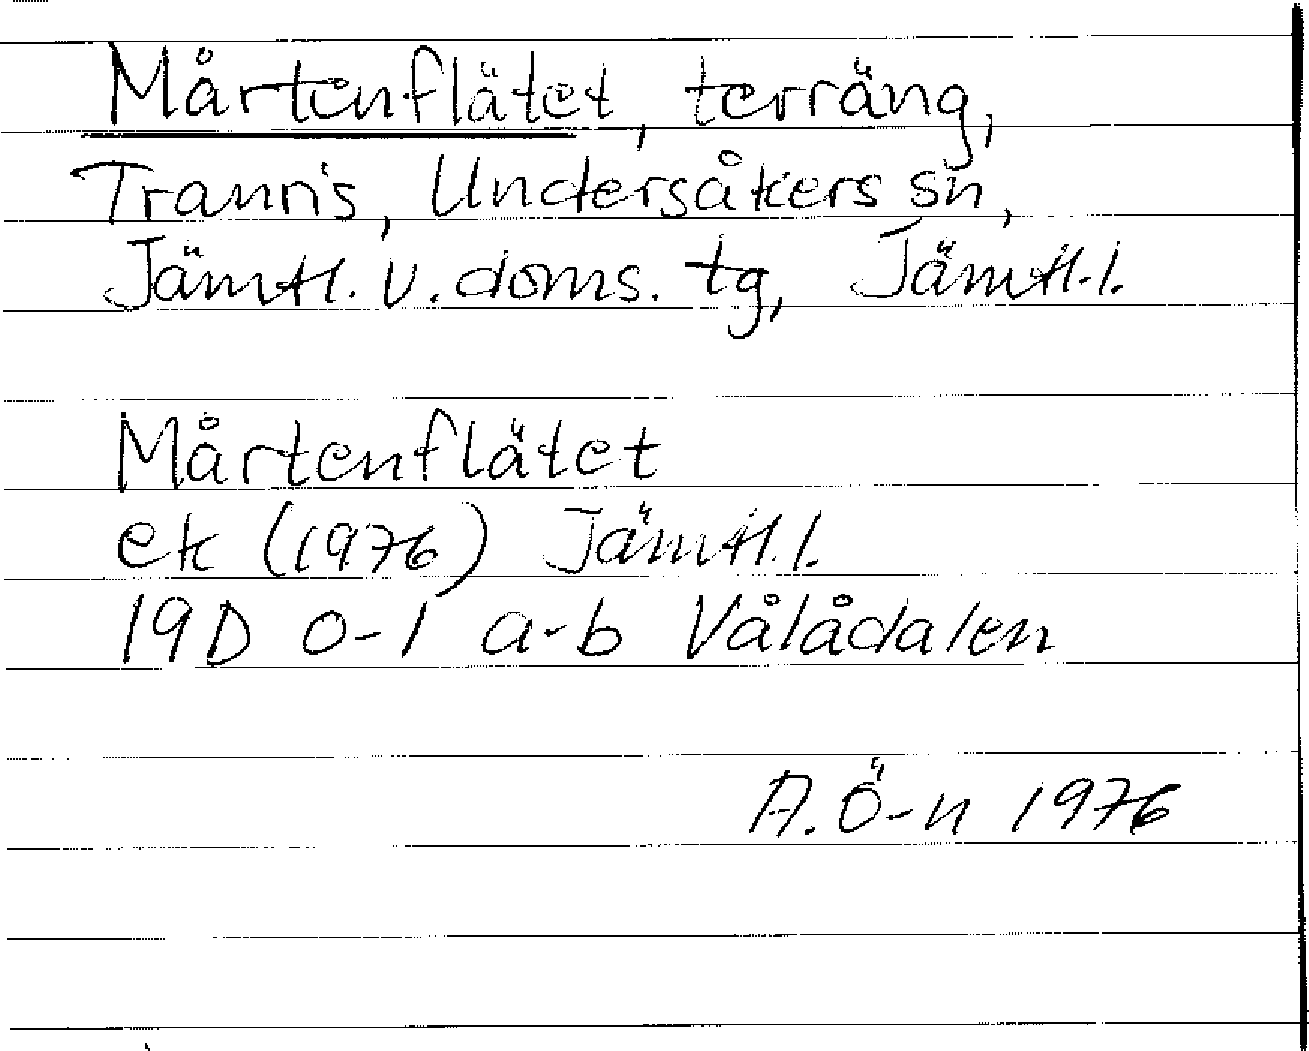 Mårtenflätet, terräng,
Tranris, Undersåkers sn,
Jämtl. v. doms. tg, Jämtl. l.
Mårtenflätet
ek (1976) Jämtl. l.
19D 0-1 a-b Vålådalen
A. Ö-n 1976